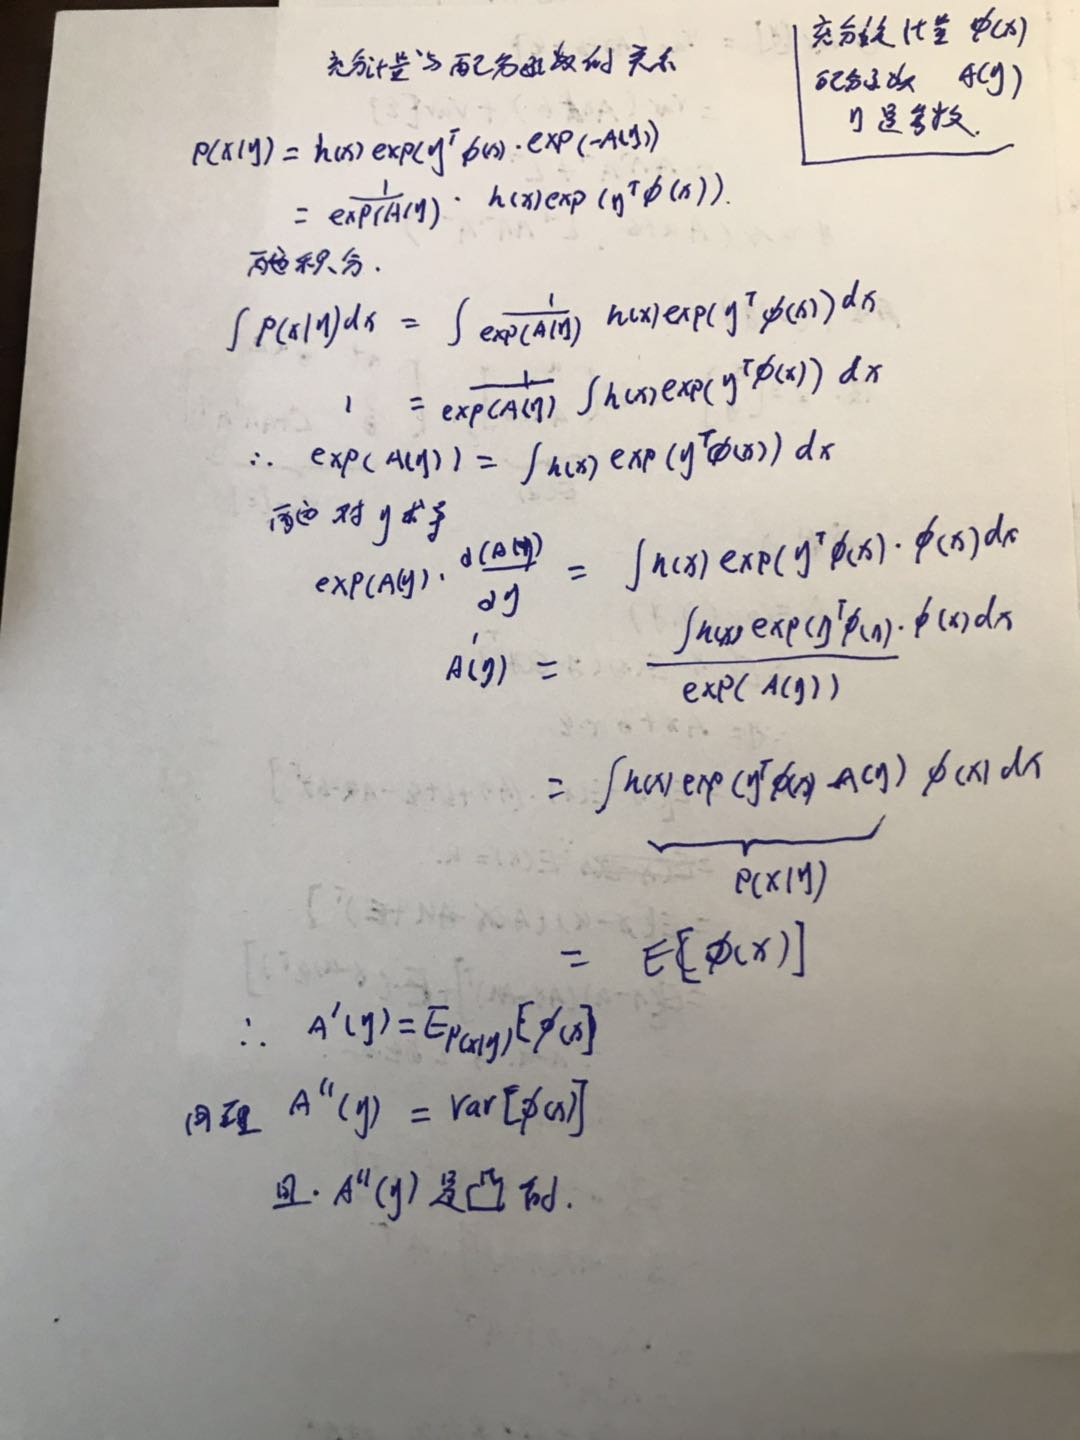 充分计量与配分函数的关系
充分统计量 φ(x)
配分函数 A(η)
η是参数.
P(x|η) = h(x) exp(η^T φ(x)) · exp(-A(η))
= 1/exp(A(η)) · h(x) exp(η^T φ(x)).
两边积分.
∫ P(x|η) dx = ∫ 1/exp(A(η)) h(x) exp(η^T φ(x)) dx
1 = 1/exp(A(η)) ∫ h(x) exp(η^T φ(x)) dx
∴ exp(A(η)) = ∫ h(x) exp(η^T φ(x)) dx
两边对η求导
exp(A(η)) · ∂(A(η))/∂η = ∫ h(x) exp(η^T φ(x)) · φ(x) dx
A'(η) = ∫ h(x) exp(η^T φ(x)) · φ(x) dx / exp(A(η))
= ∫ h(x) exp(η^T φ(x) - A(η)) φ(x) dx
P(x|η)
= E[φ(x)]
∴ A'(η) = E_{P(x|η)}[φ(x)]
同理 A''(η) = Var[φ(x)]
且. A''(η) 是凸的.